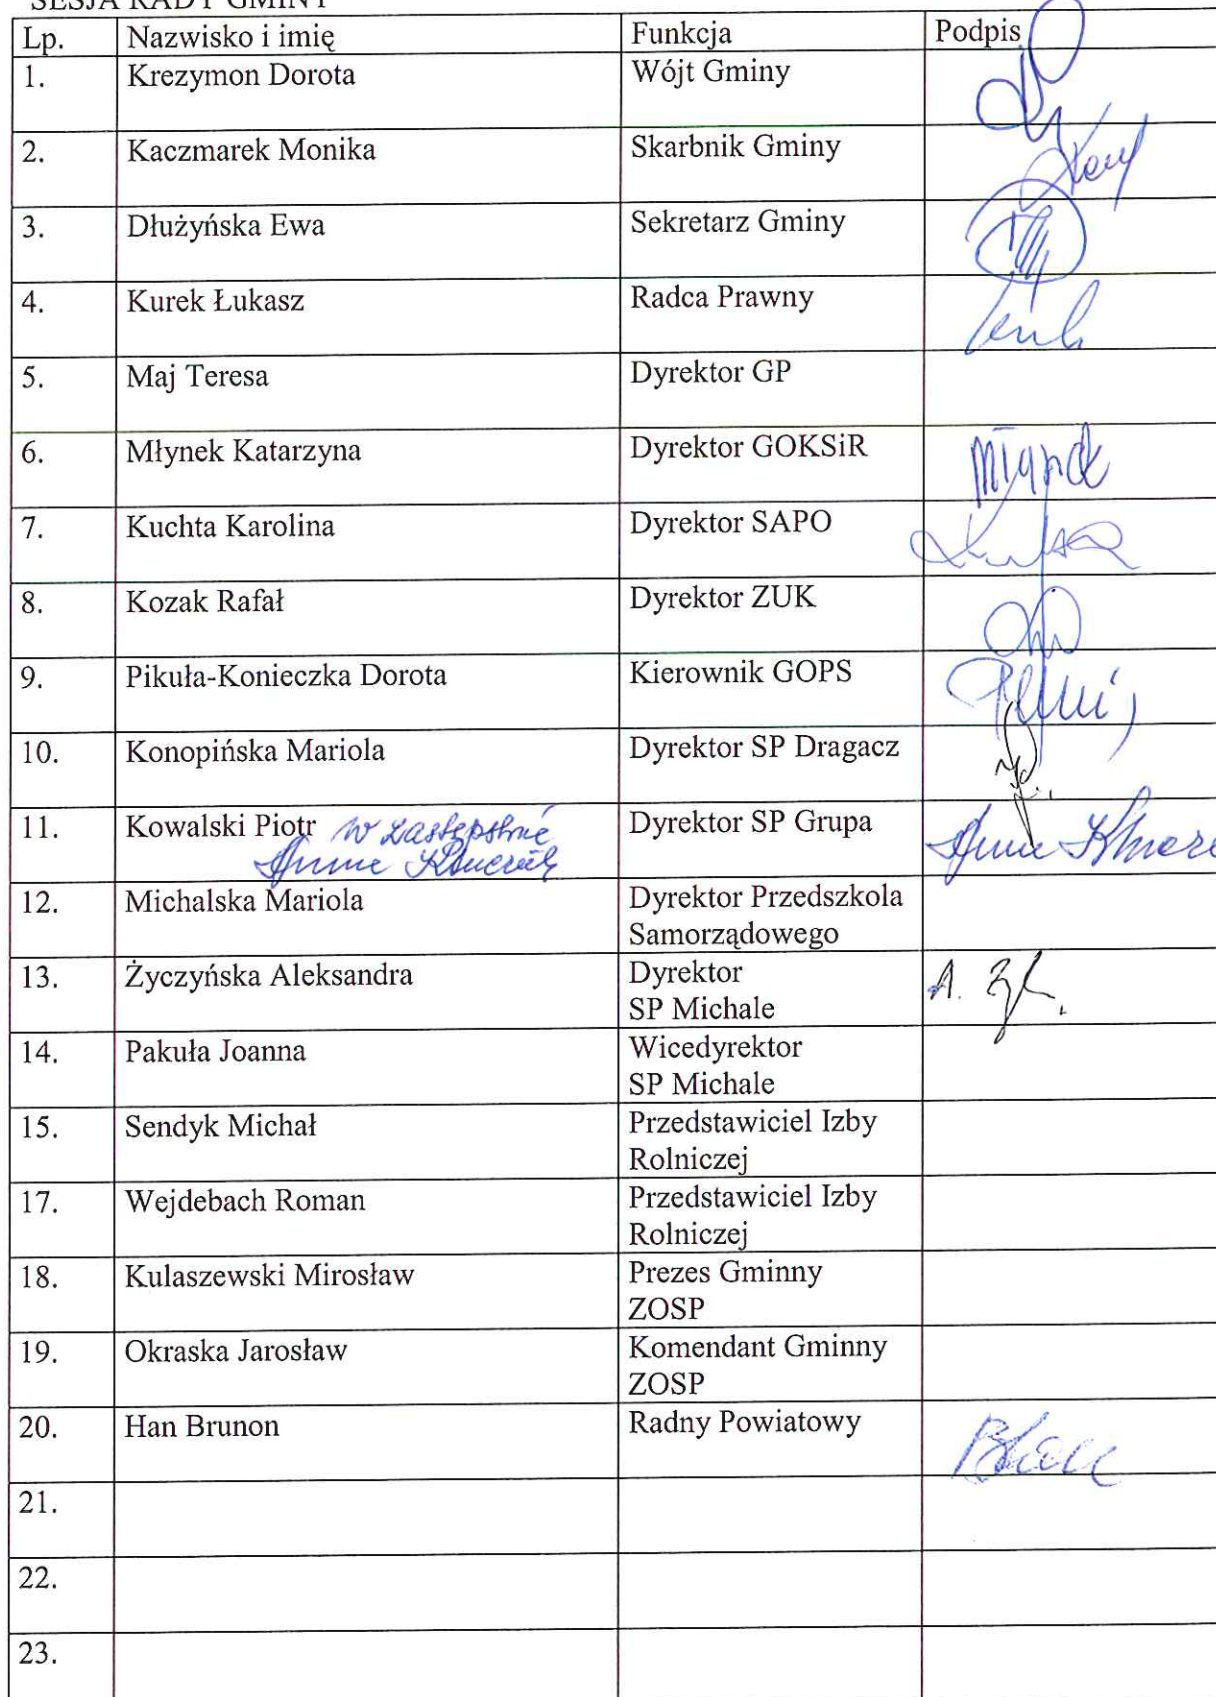 SESJA RADY GMINY
Lp. Nazwisko i imię Funkcja Podpis
1. Krezymon Dorota Wójt Gminy
2. Kaczmarek Monika Skarbnik Gminy
3. Dłużyńska Ewa Sekretarz Gminy
4. Kurek Łukasz Radca Prawny
5. Maj Teresa Dyrektor GP
6. Młynek Katarzyna Dyrektor GOKSiR Młynek
7. Kuchta Karolina Dyrektor SAPO
8. Kozak Rafał Dyrektor ZUK
9. Pikuła-Konieczka Dorota Kierownik GOPS
10. Konopińska Mariola Dyrektor SP Dragacz
11. Kowalski Piotr w zastępstwie Dyrektor SP Grupa
12. Michalska Mariola Dyrektor Przedszkola
Samorządowego
13. Życzyńska Aleksandra Dyrektor A.
SP Michale
14. Pakuła Joanna Wicedyrektor
SP Michale
15. Sendyk Michał Przedstawiciel Izby
Rolniczej
17. Wejdebach Roman Przedstawiciel Izby
Rolniczej
18. Kulaszewski Mirosław Prezes Gminny
ZOSP
19. Okraska Jarosław Komendant Gminny
ZOSP
20. Han Brunon Radny Powiatowy
21.
22.
23.